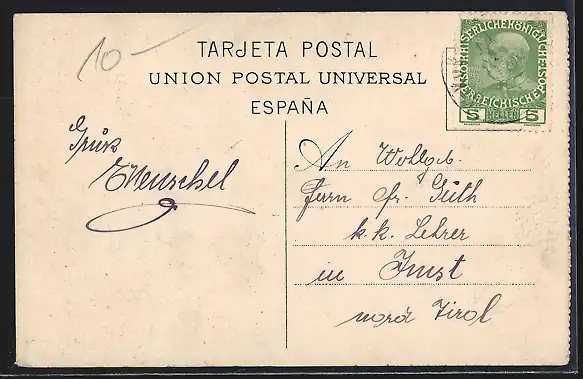 10-
TARJETA POSTAL
UNION POSTAL UNIVERSAL
ESPAÑA
KAISERLICHE KÖNIGLICHE POST
ÖSTERREICHISCHE
5 HELLER 5
Gruß
Henschel
An Wohlgeb.
Herrn fr. Guth
k.k. Lehrer
in Imst
nord Tirol